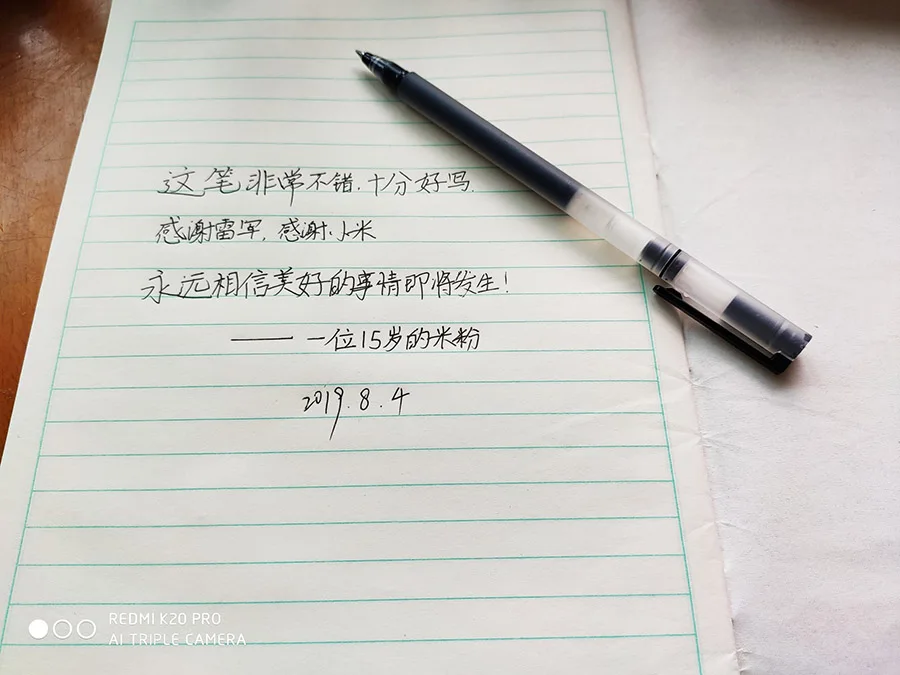 这笔非常不错.十分好写.
感谢雷军,感谢小米
永远相信美好的事情即将发生!
—— 一位15岁的米粉
2019.8.4
REDMI K20 PRO
AI TRIPLE CAMERA